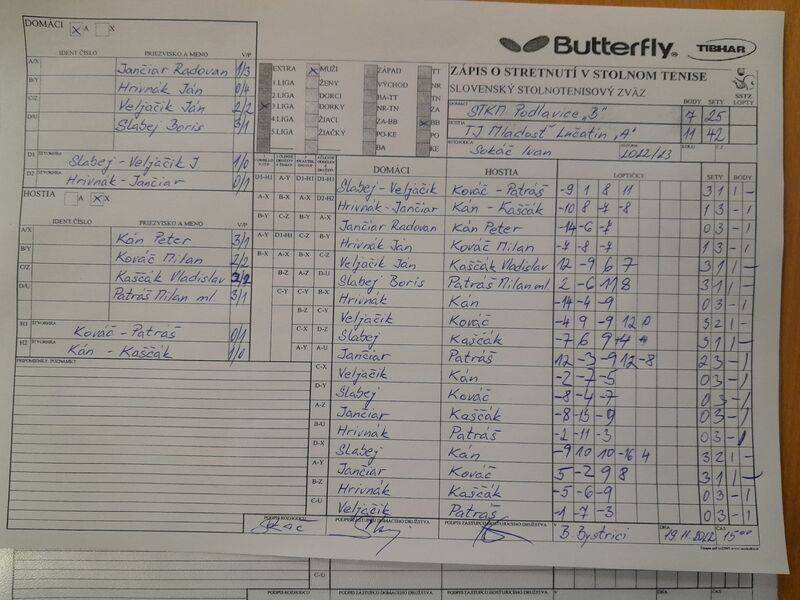 DOMÁCI A X
Butterfly TIBHAR
IDENT.ČÍSLO PRIEZVISKO A MENO V/P
A/X Jančiar Radovan 1/3
B/Y Hrivnák Ján 0/4
C/Z Veljačik Ján 2/2
D/U Slabej Boris 3/1
EXTRA MUŽI ZÁPAD TT
1.LIGA ŽENY VÝCHOD NR
2.LIGA DORCI BA-TT TN
3.LIGA DORKY NR-TN ZA
4.LIGA ŽIACI ZA-BB BB
5.LIGA ŽIAČKY PO-KE PO
BA KE
ZÁPIS O STRETNUTÍ V STOLNOM TENISE
SLOVENSKÝ STOLNOTENISOVÝ ZVÄZ
SSTZ
BODY SETY LOPTY
DOMÁCI STKM Podlavice "B" 7 25
HOSTIA TJ Mladosť Lučatín "A" 11 42
ROZHODCA Sokáč Ivan 2022/23
D1 ŠTVORHRA Slabej - Veljačik J. 1/0
D2 Hrivnák - Jančiar 0/1
HOSTIA A X
IDENT.ČÍSLO PRIEZVISKO A MENO V/P
A/X Kán Peter 3/1
B/Y Kováč Milan 2/2
C/Z Kaščák Vladislav
D/U Patráš Milan ml. 3/1
H1 ŠTVORHRA Kováč - Patráš 0/1
H2 Kán - Kaščák 1/0
PRIPOMIENKY, POZNÁMKY
DOMÁCI HOSTIA LOPTIČKY SETY BODY
Slabej - Veljačik Kováč - Patráš -9 1 8 11 3 1 1 -
Hrivnák - Jančiar Kán - Kaščák -10 8 -7 -8 1 3 - 1
Jančiar Radovan Kán Peter -14 -6 -7 0 3 - 1
Hrivnák Ján Kováč Milan -7 -8 -7 1 3 - 1
Veljačik Ján Kaščák Vladislav 12 -9 6 7 3 1 1 -
Slabej Boris Patráš Milan ml. 2 -6 11 8 3 1 1 -
Hrivnák Kán -14 -4 -9 0 3 - 1
Veljačik Kováč -4 9 -9 12 3 2 1 -
Slabej Kaščák -7 6 9 3 1 1 -
Jančiar Patráš 12 -3 -9 12 -8 2 3 - 1
C-X Veljačik Kán -2 -7 -5 0 3 - 1
D-Y Slabej Kováč -8 -4 -7 0 3 - 1
A-Z Jančiar Kaščák -8 -13 -9 0 3 - 1
B-U Hrivnák Patráš -2 -11 -3 0 3 - 1
D-X Slabej Kán -9 10 10 -16 4 3 2 1 -
A-Y Jančiar Kováč 5 -2 9 8 3 1 1 -
B-Z Hrivnák Kaščák -5 -6 -9 0 3 - 1
C-U Veljačik Patráš -1 -7 -3 0 3 - 1
PODPIS ROZHODCU PODPIS ZÁSTUPCU DOMÁCEHO DRUŽSTVA PODPIS ZÁSTUPCU HOSŤUJÚCEHO DRUŽSTVA V B. Bystrici DŇA 19.11.2022 ČAS 15 00
C-U
PODPIS ROZHODCU PODPIS ZÁSTUPCU DOMÁCEHO DRUŽSTVA PODPIS ZÁSTUPCU HOSŤUJÚCEHO DRUŽSTVA V DŇA ČAS